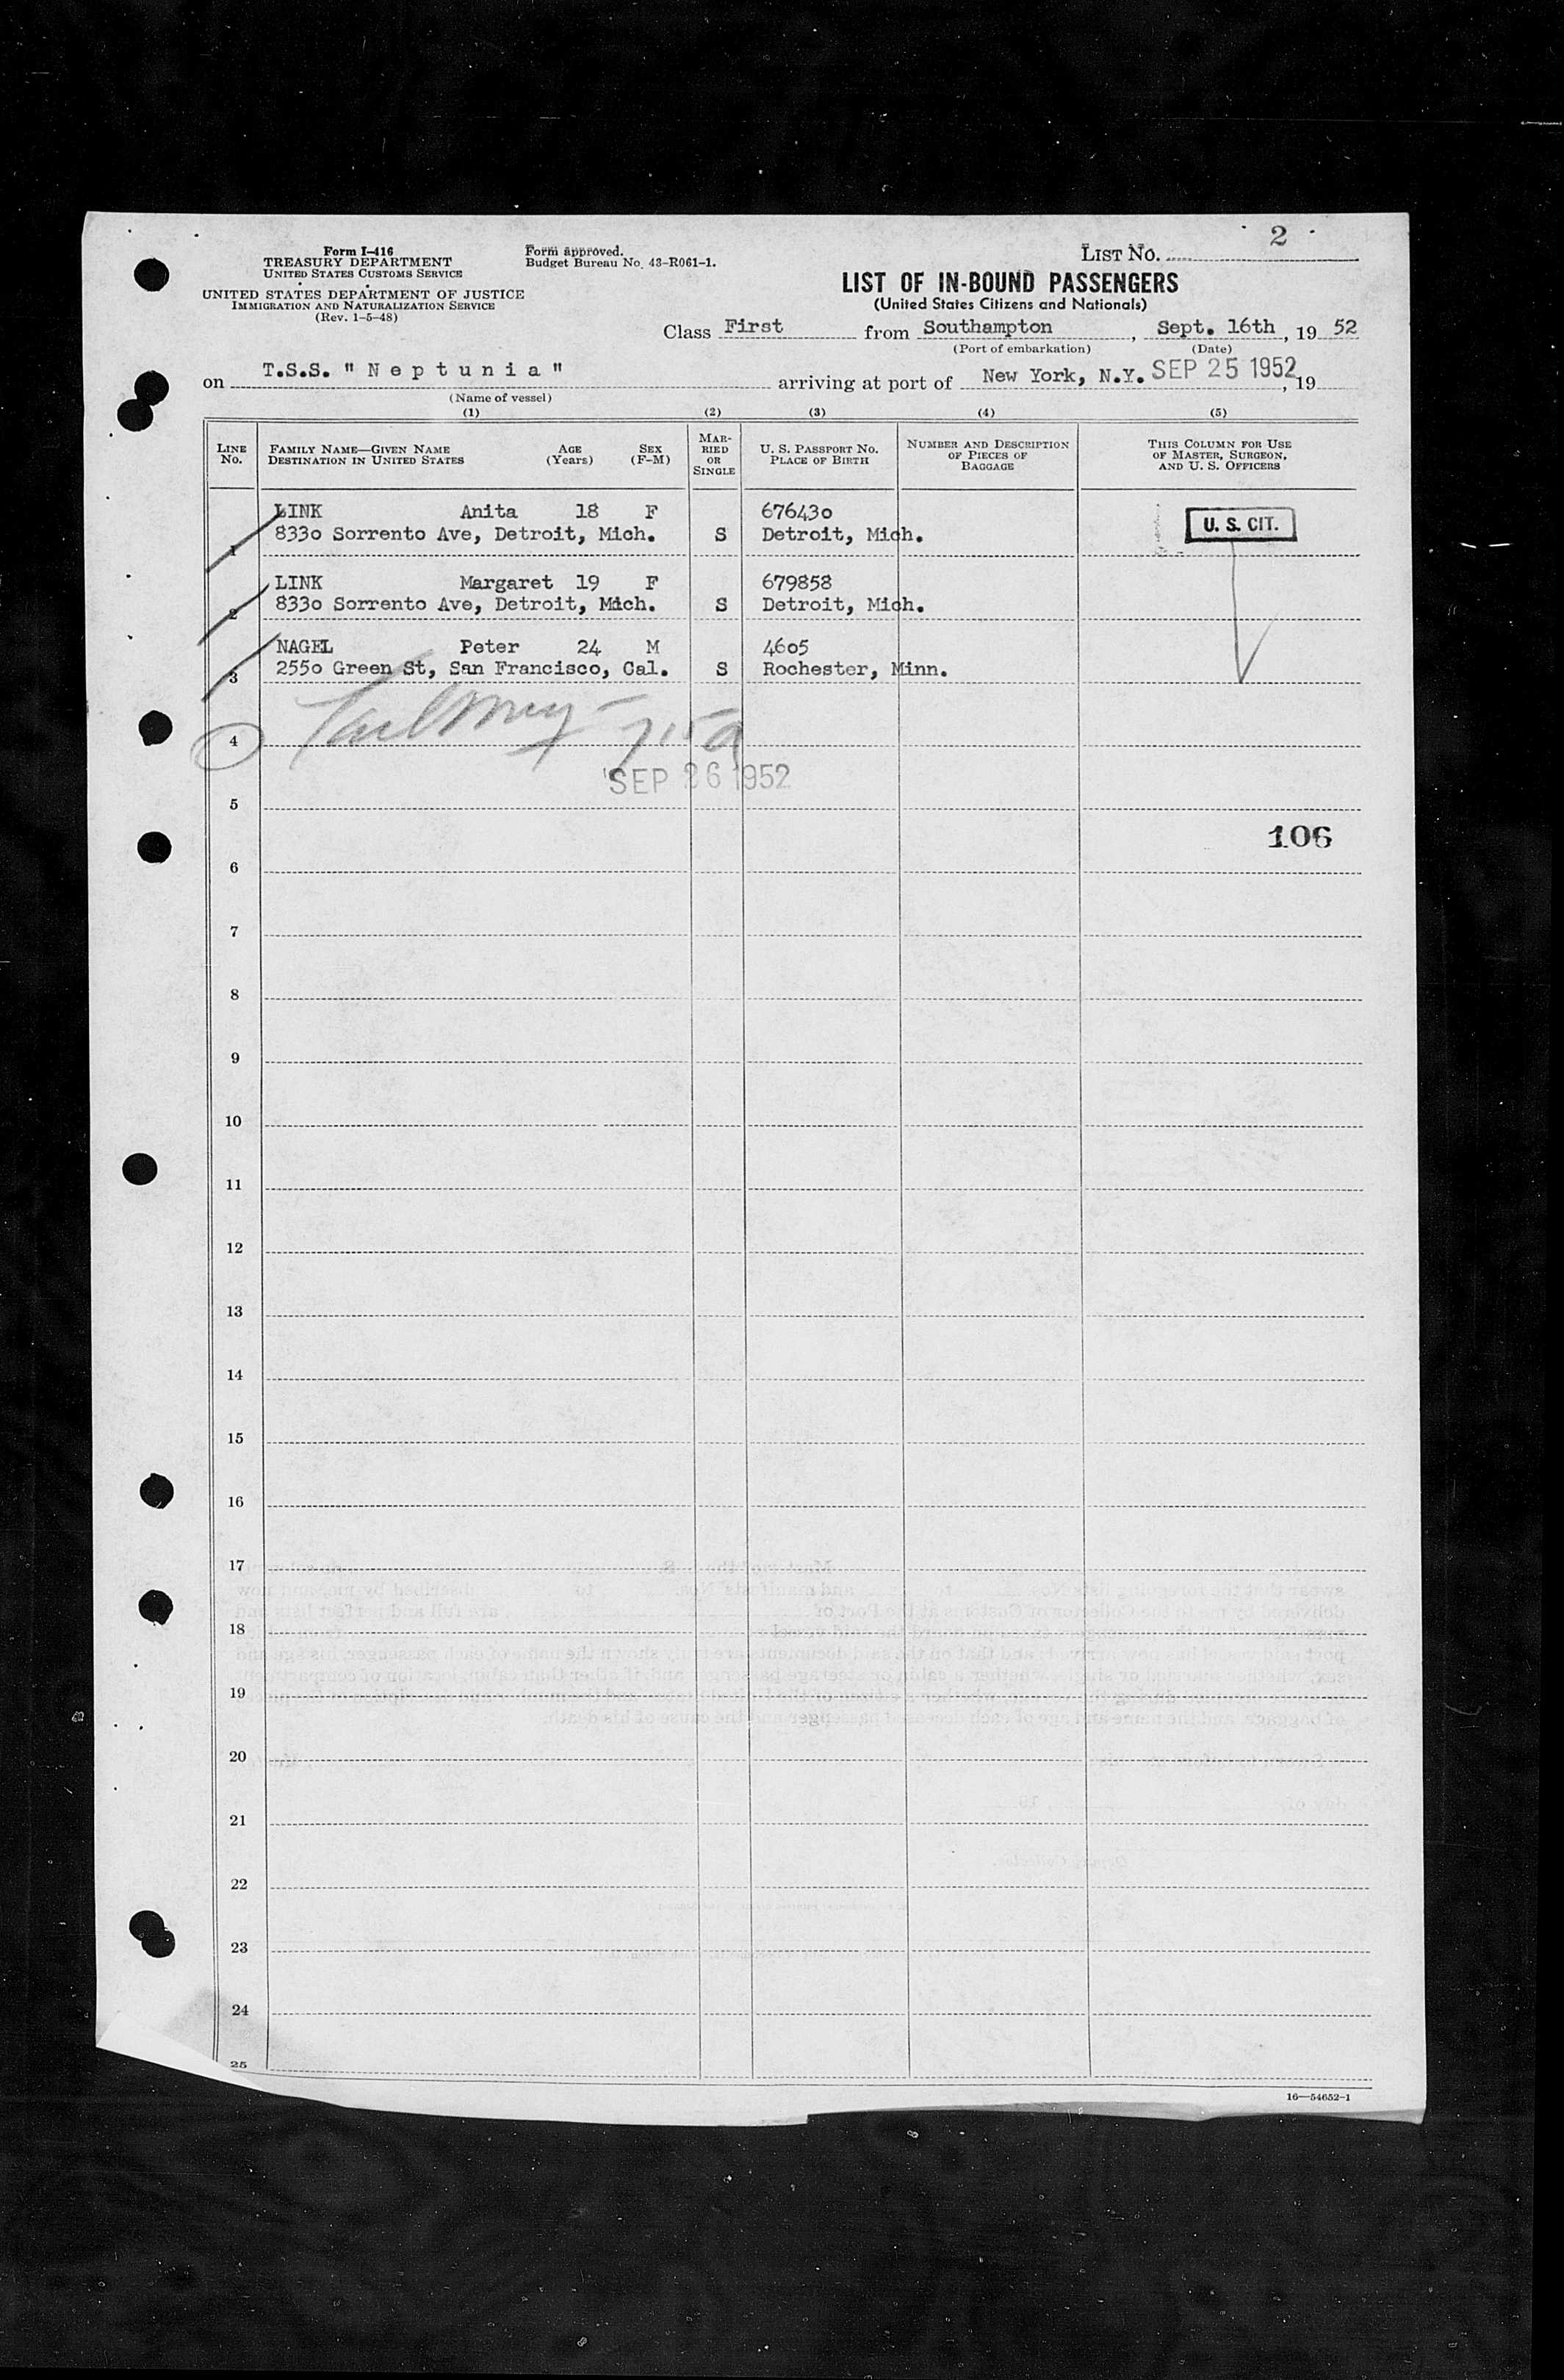 Form I-416
TREASURY DEPARTMENT
UNITED STATES CUSTOMS SERVICE
UNITED STATES DEPARTMENT OF JUSTICE
IMMIGRATION AND NATURALIZATION SERVICE
(Rev. 1-5-48)
Form approved.
Budget Bureau No. 43-R061-1.
LIST NO. 2
LIST OF IN-BOUND PASSENGERS
(United States Citizens and Nationals)
Class First from Southampton, Sept. 16th, 19 52
(Port of embarkation) (Date)
on T.S.S. " N e p t u n i a " arriving at port of New York, N.Y. SEP 25 1952, 19
(Name of vessel)
(1) (2) (3) (4) (5)
LINE No. FAMILY NAME—GIVEN NAME DESTINATION IN UNITED STATES AGE (Years) SEX (F-M) MARRIED OR SINGLE U. S. PASSPORT NO. PLACE OF BIRTH NUMBER AND DESCRIPTION OF PIECES OF BAGGAGE THIS COLUMN FOR USE OF MASTER, SURGEON, AND U. S. OFFICERS
LINK Anita 18 F 676430
1 8330 Sorrento Ave, Detroit, Mich. S Detroit, Mich.
U. S. CIT.
LINK Margaret 19 F 679858
2 8330 Sorrento Ave, Detroit, Mich. S Detroit, Mich.
NAGEL Peter 24 M 4605
3 2550 Green St, San Francisco, Cal. S Rochester, Minn.
4
SEP 26 1952
5
106
6
7
8
9
10
11
12
13
14
15
16
17
18
19
20
21
22
23
24
25
16—54652-1